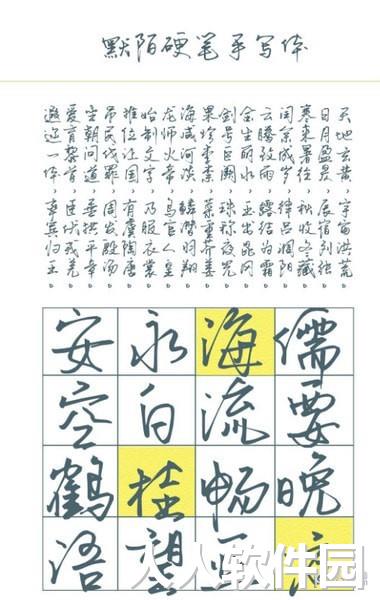 默陌硬笔手写体
天地玄黄，宇宙洪荒。
日月盈昃，辰宿列张。
寒来暑往，秋收冬藏。
闰余成岁，律吕调阳。
云腾致雨，露结为霜。
金生丽水，玉出昆冈。
剑号巨阙，珠称夜光。
果珍李柰，菜重芥姜。
海咸河淡，鳞潜羽翔。
龙师火帝，鸟官人皇。
始制文字，乃服衣裳。
推位让国，有虞陶唐。
吊民伐罪，周发殷汤。
坐朝问道，垂拱平章。
爱育黎首，臣伏戎羌。
遐迩一体，率宾归王。
安永海儒
空白流要
鹤桂畅晚
人人软件园